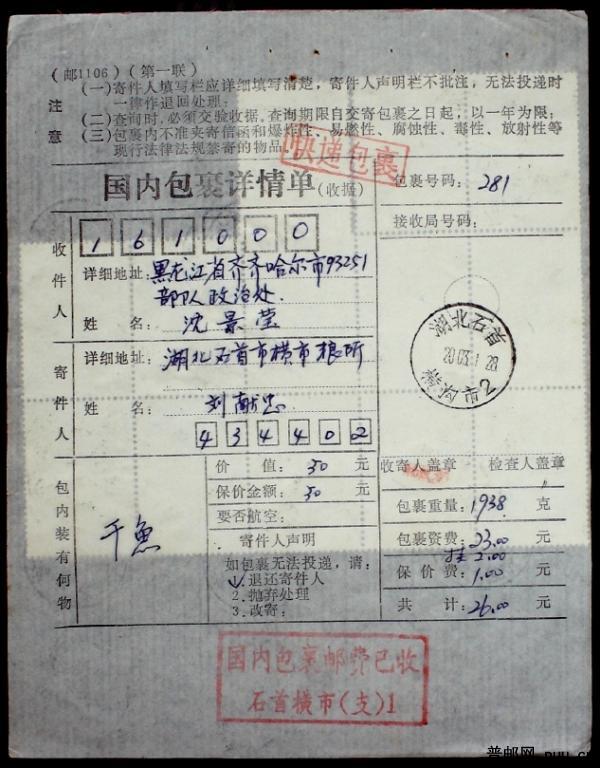 （邮1106）（第一联）
注意
（一）寄件人填写栏应详细填写清楚，寄件人声明栏不批注，无法投递时
一律作退回处理；
（二）查询时，必须交验收据。查询期限自交寄包裹之日起，以一年为限；
（三）包裹内不准夹寄信函和爆炸性、易燃性、腐蚀性、毒性、放射性等
现行法律法规禁寄的物品。
快递包裹
国内包裹详情单（收据）
包裹号码：281
接收局号码：
收件人
161000
详细地址：黑龙江省齐齐哈尔市93251
部队政治处
姓名：沈景莹
寄件人
详细地址：湖北石首市横市粮所
姓名：刘献忠
434402
湖北石首
横沟市2
包内装有何物
干鱼
价值：50元
保价金额：50元
要否航空：
寄件人声明
如包裹无法投递，请：
1.退还寄件人
2.抛弃处理
3.改寄：
收寄人盖章
检查人盖章
包裹重量：1938克
包裹资费：23.00元
挂2.00
保价费：1.00元
共计：26.00元
国内包裹邮费已收
石首横市(支)1
普邮网